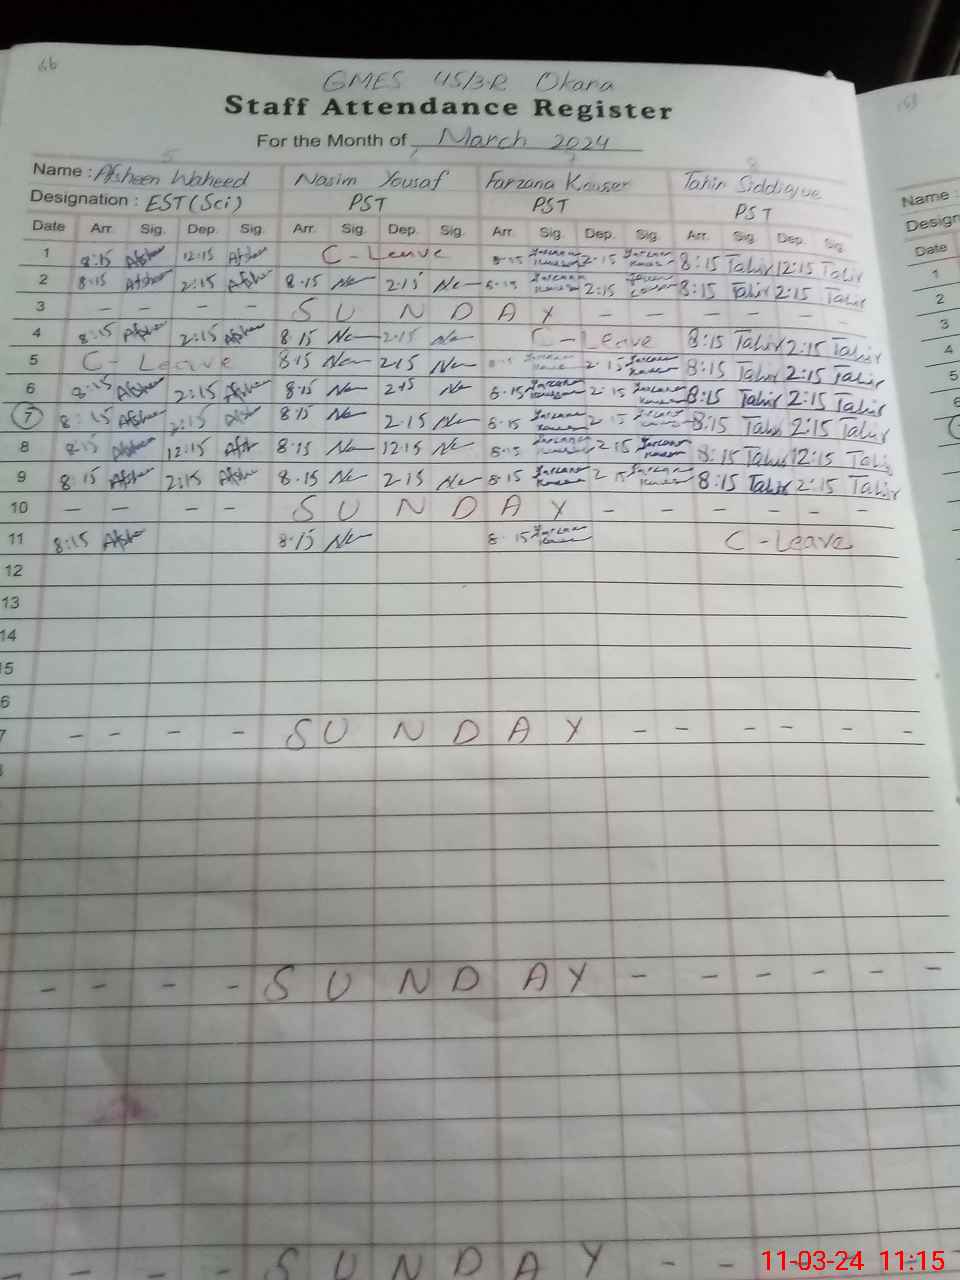 66
GMES 45/3-R Okara
Staff Attendance Register
For the Month of March 2024
Name : Afsheen Waheed Nasim Yousaf Farzana Kouser Tahir Siddique
Designation : EST (Sci) PST PST PST
Date Arr. Sig. Dep. Sig. Arr. Sig. Dep. Sig. Arr. Sig. Dep. Sig. Arr. Sig. Dep. Sig.
1 8:15 Afsheen 12:15 Afsheen C-Leave 8-15 Farzana Kouser 2-15 Farzana Kouser 8:15 Tahir 12:15 Tahir
2 8:15 Afsheen 2:15 Afsheen 8.15 2.15 8-15 Farzana Kouser 2:15 Farzana Kouser 8:15 Tahir 2:15 Tahir
3 - - - - S U N D A Y - - - - -
4 8:15 Afsheen 2:15 Afsheen 8.15 2.15 C-Leave 8:15 Tahir 2:15 Tahir
5 C-Leave 8:15 2:15 8-15 Farzana Kouser 2-15 Farzana Kouser 8:15 Tahir 2:15 Tahir
6 8:15 Afsheen 2:15 Afsheen 8:15 2:15 8-15 Farzana Kouser 2-15 Farzana Kouser 8:15 Tahir 2:15 Tahir
7 8:15 Afsheen 2:15 Afsh 8:15 2.15 8-15 Farzana Kouser 2-15 Farzana Kouser 8:15 Tahir 2:15 Tahir
8 8:15 Afsheen 12:15 Afsh 8:15 12.15 8-15 Farzana Kouser 2-15 Farzana Kouser 8:15 Tahir 12:15 Tahir
9 8:15 Afsheen 2:15 Afsheen 8.15 2.15 8-15 Farzana Kouser 2-15 Farzana Kouser 8:15 Tahir 2:15 Tahir
10 - - - - S U N D A Y - - - - -
11 8:15 Afshe 8.15 8-15 Farzana Kouser C-Leave
12
13
14
15
6
7 - - - - S U N D A Y - - - - - -
- - - - S U N D A Y - - - - - -
- - - - S U N D A Y - -
Name :
Design
Date
1
2
3
4
5
6
11-03-24 11:15